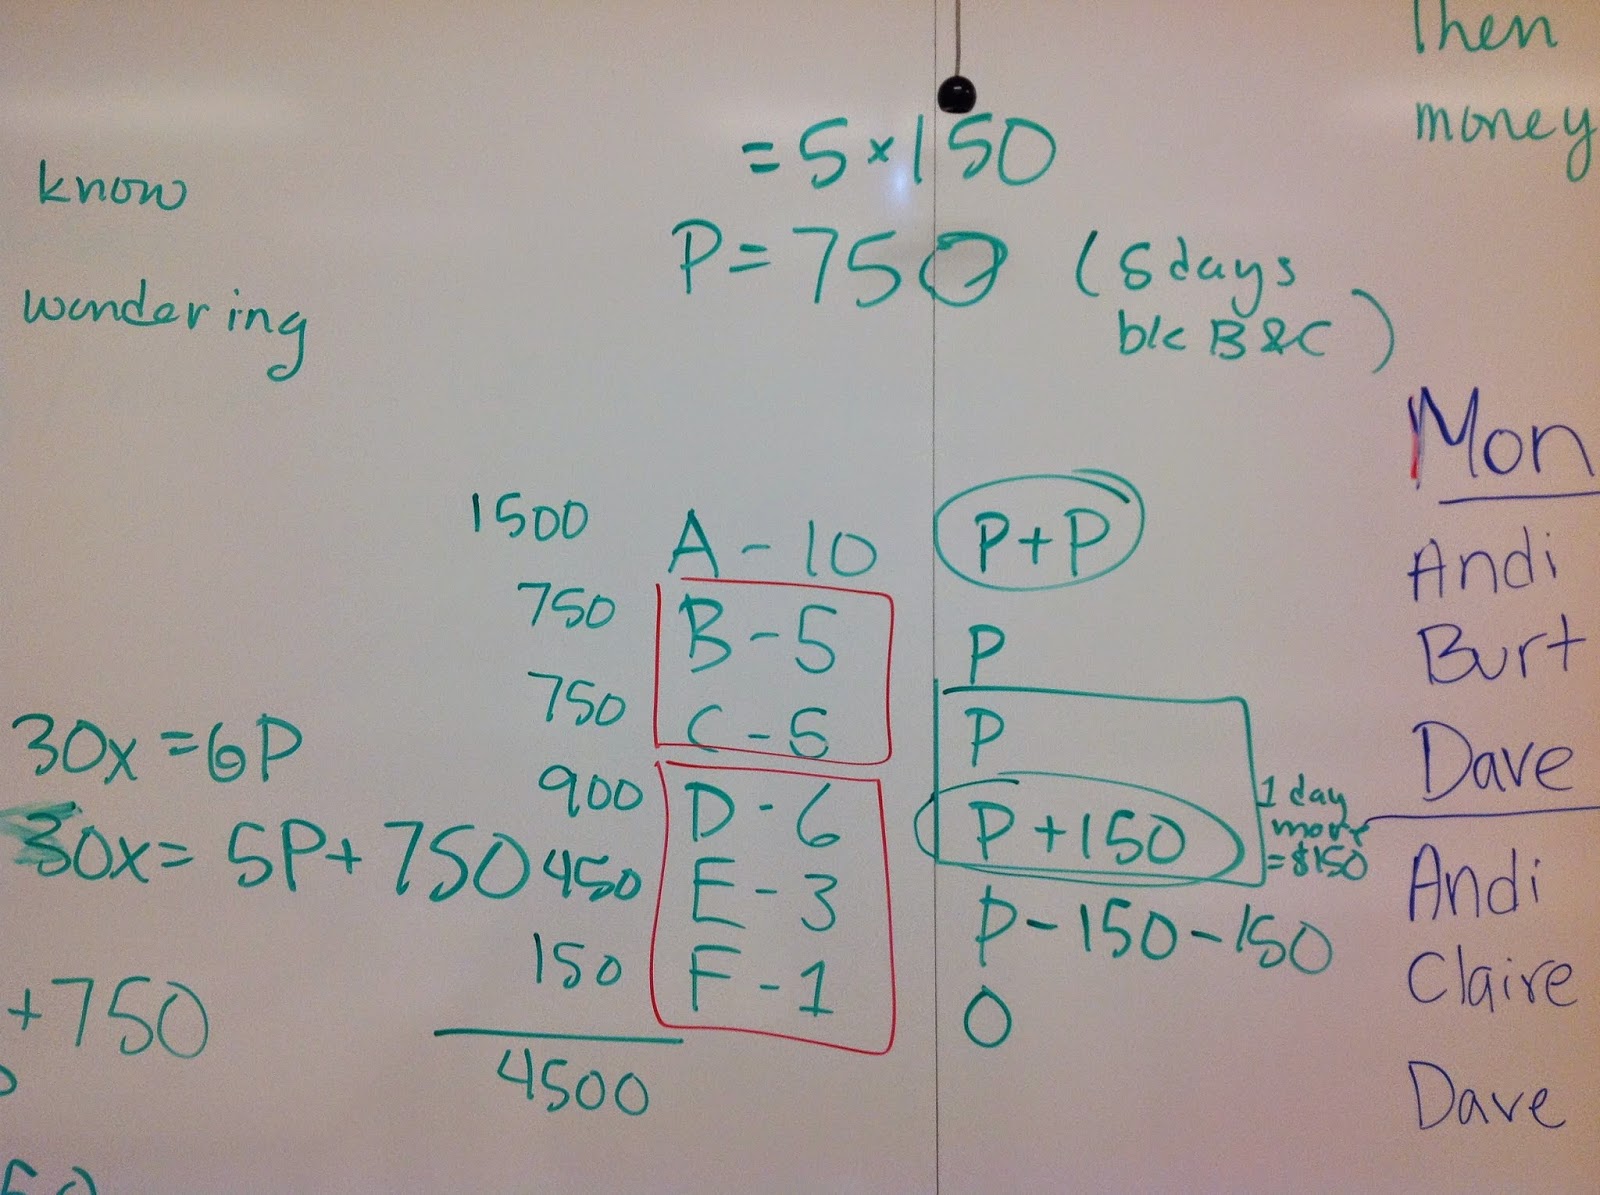 Then
money
know
wondering
= 5 × 150
P = 750 (5 days
b/c B & C)
1500 A - 10 P + P
750 B - 5 P
750 C - 5 P
900 D - 6 P + 150
450 E - 3 P - 150 - 150
150 F - 1 0
4500
1 day
more
= $150
30x = 6P
30x = 5P + 750
+ 750
Mon
Andi
Burt
Dave
Andi
Claire
Dave